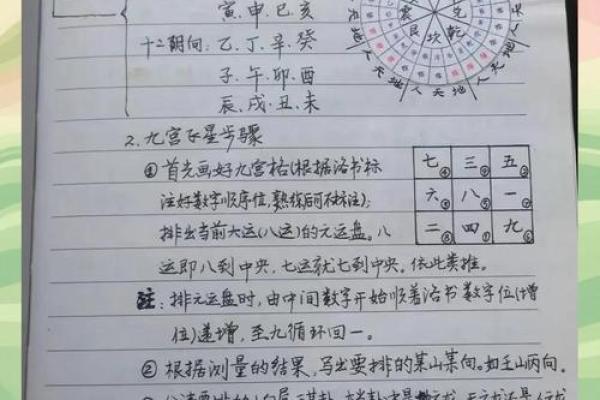 寅.申.巳.亥
十二阴向:乙.丁.辛.癸
子.午.卯.酉
辰.戌.丑.未
兑
震
艮 坎 乾
人 天 地 人 天 地 人 天 地
2.九宫飞星步骤
①首先画好九宫格(根据洛书标
注好数字顺序位,熟练后可不标注);
排出当前大运(八运)的元运盘。八
运即八到中央,七运就七到中央。依此类推。
七④ 三⑨ 五②
六③ 八⑤ 一⑦
二⑧ 四① 九⑥
注:排元运盘时,由中间数字开始顺着洛书数字位(增
位)递增,至九循环回一。
②根据测量的结果,写出要排的某山某向。如壬山丙向。